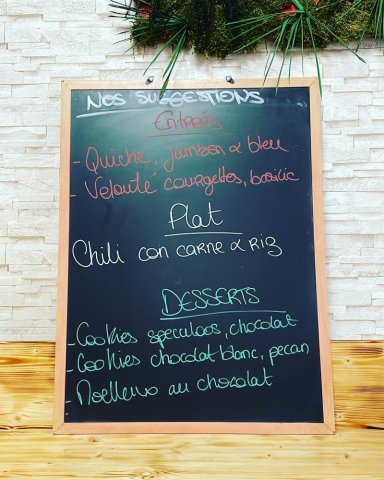 NOS SUGGESTIONS
Entrées
- Quiche, jambon & bleu
- Velouté courgettes, basilic
Plat
Chili con carne & riz
DESSERTS
- Cookies speculoos, chocolat
- Cookies chocolat blanc, pecan
- Moelleux au chocolat